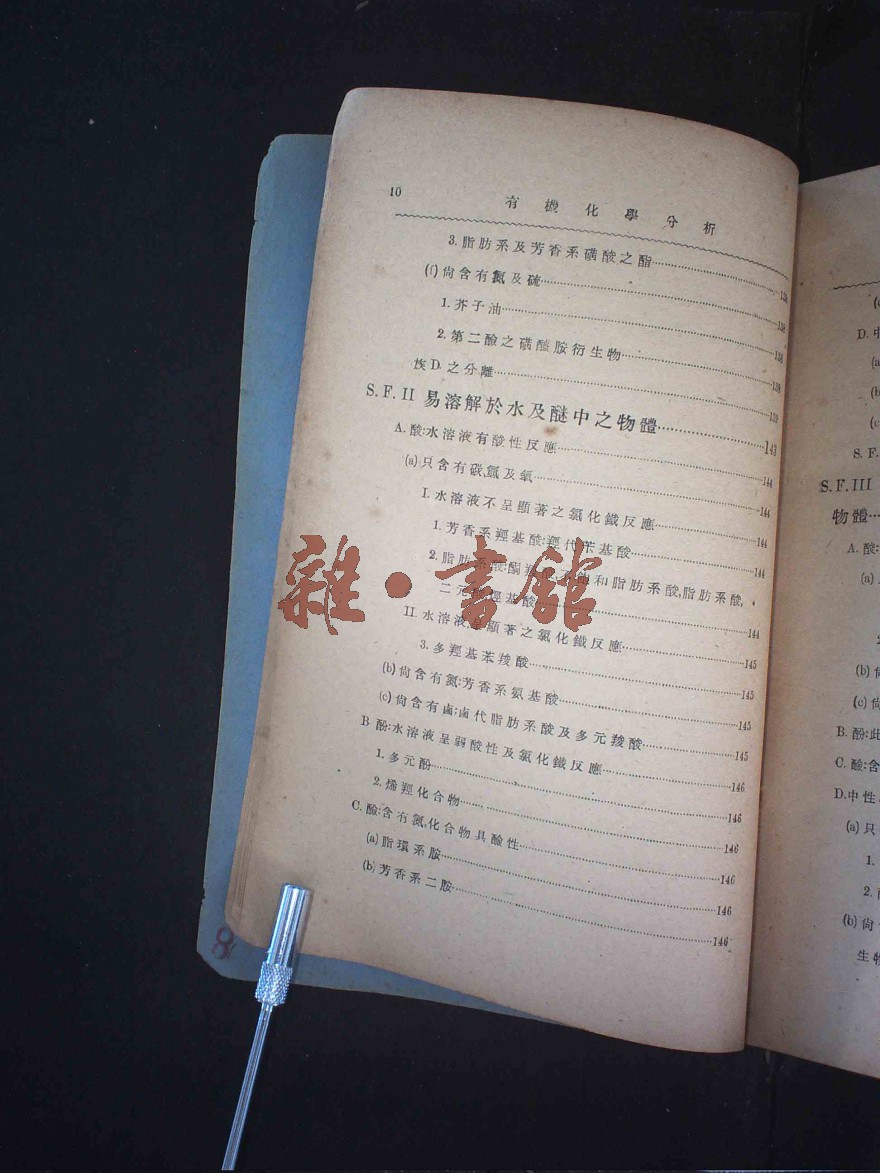 10
有機化學分析
3.脂肪系及芳香系磺酸之酯……138
(f)尚含有氮及硫……138
1.芥子油……138
2.第二鹼之磺醯胺衍生物……138
族D之分離……139
S.F.II 易溶解於水及醚中之物體……143
A.酸:水溶液有酸性反應……144
(a)只含有碳,氫及氧……144
I.水溶液不呈顯著之氯化鐵反應……144
1.芳香系羥基酸:羥代苯基酸……144
2.脂肪系酸:酮 和脂肪系酸,脂肪系酸,
二元 羥基酸……144
II.水溶液呈顯著之氯化鐵反應……145
3.多羥基苯羧酸……145
(b)尚含有氮:芳香系氨基酸……145
(c)尚含有鹵:鹵代脂肪系酸及多元羧酸……145
B 酚:水溶液呈弱酸性及氯化鐵反應……146
1.多元酚……146
2.烯羥化合物……146
C.鹼:含有氮,化合物具鹼性……146
(a)脂環系胺……146
(b)芳香系二胺……146
雜·書館
8
D.中
(a
(b
(c
S.F.
S.F.III
物體…
A.酸:
(a)
2
(b)尚
(c)尚
B.酚:此
C.鹼:含
D.中性
(a)只
1.
2.
(b)尚
生物